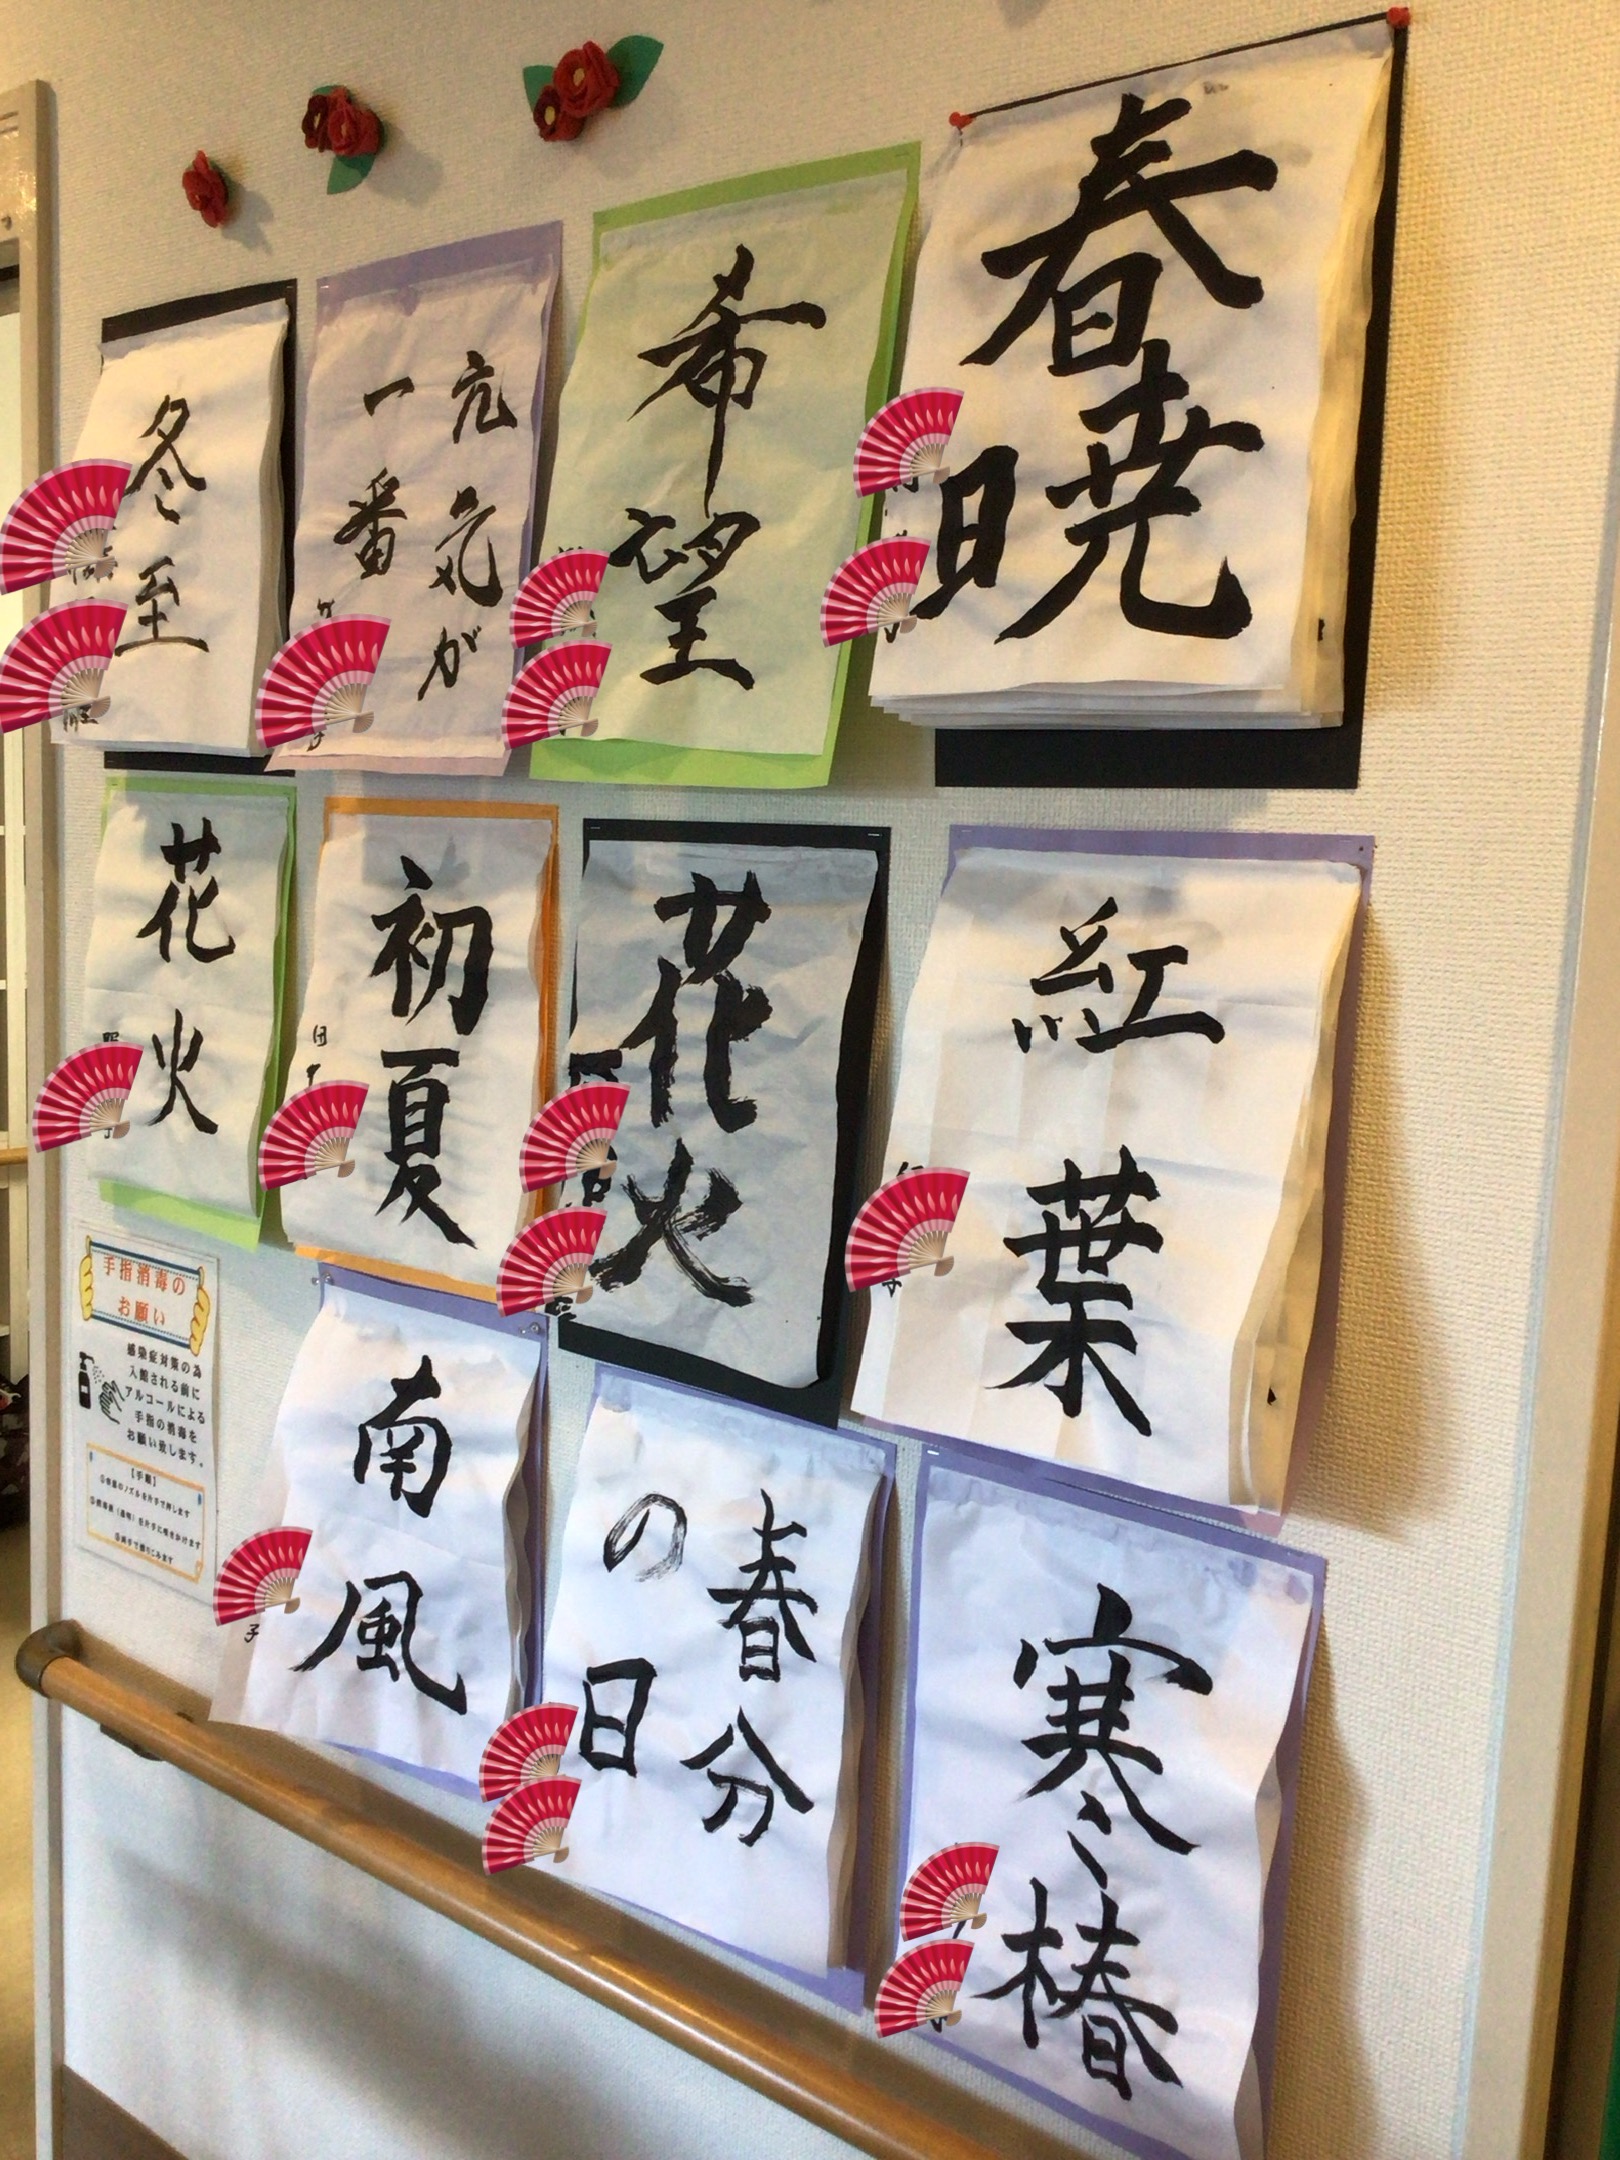 春暁
希望
元気が
一番
冬至
紅葉
花火
初夏
花火
寒椿
春分
の日
南風
手指消毒の
お願い
感染症対策の為
入館される前に
アルコールによる
手指の消毒を
お願い致します。
【手順】